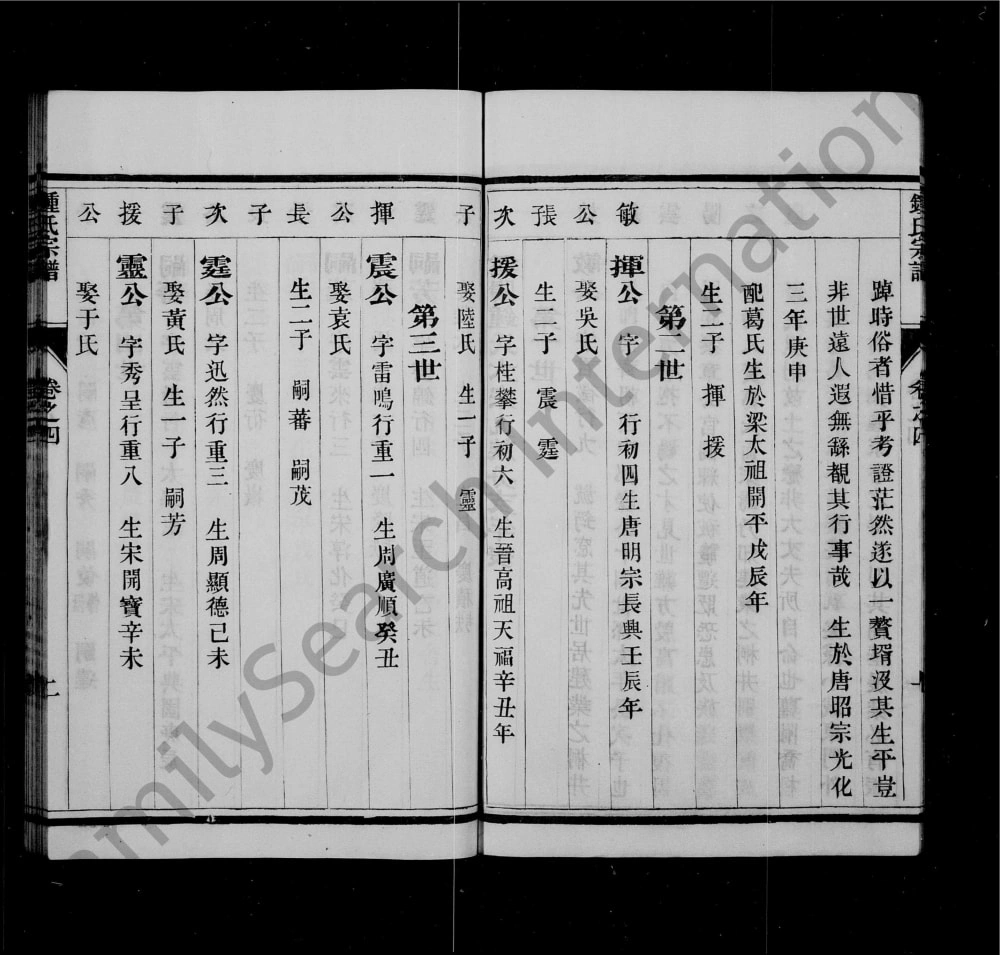 鍾氏宗譜 卷之四
踔時俗者惜乎考證茫然遂以一贅壻沒其生平豈
非世遠人遐無繇覩其行事哉 生於唐昭宗光化
三年庚申
配葛氏生於梁太祖開平戊辰年
生二子 揮 援
第二世
敏 揮公 字 行初四生唐明宗長興壬辰年
公 娶吳氏
張 生二子 震 霆
次 援公 字桂攀行初六 生晉高祖天福辛丑年
子 娶陸氏 生一子 靈
第三世
揮 震公 字雷鳴行重一 生周廣順癸丑
公 娶袁氏
長 生二子 嗣蕃 嗣茂
子
次 霆公 字迅然行重三 生周顯德己未
子 娶黃氏 生一子 嗣芳
援 靈公 字秀呈行重八 生宋開寶辛未
公 娶于氏
鍾氏宗譜 卷之四
FamilySearch International